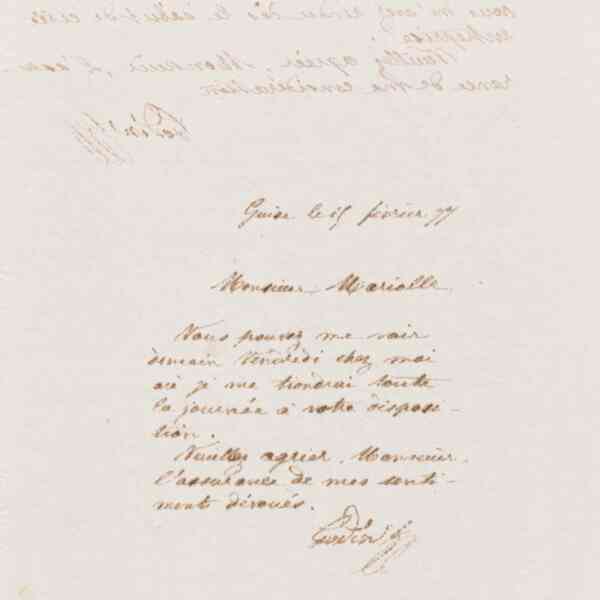 vous m'avez rendu dès le début de cette
Veuillez agréer, Monsieur, l'assu-
rance de ma considération
Godin
Guise le 15 février 77
Monsieur Mariolle
Vous pouvez me voir
demain Vendredi chez moi
où je me tiendrai toute
la journée à votre disposi-
tion.
Veuillez agréer, Monsieur,
l'assurance de mes senti-
ments dévoués.
Godin